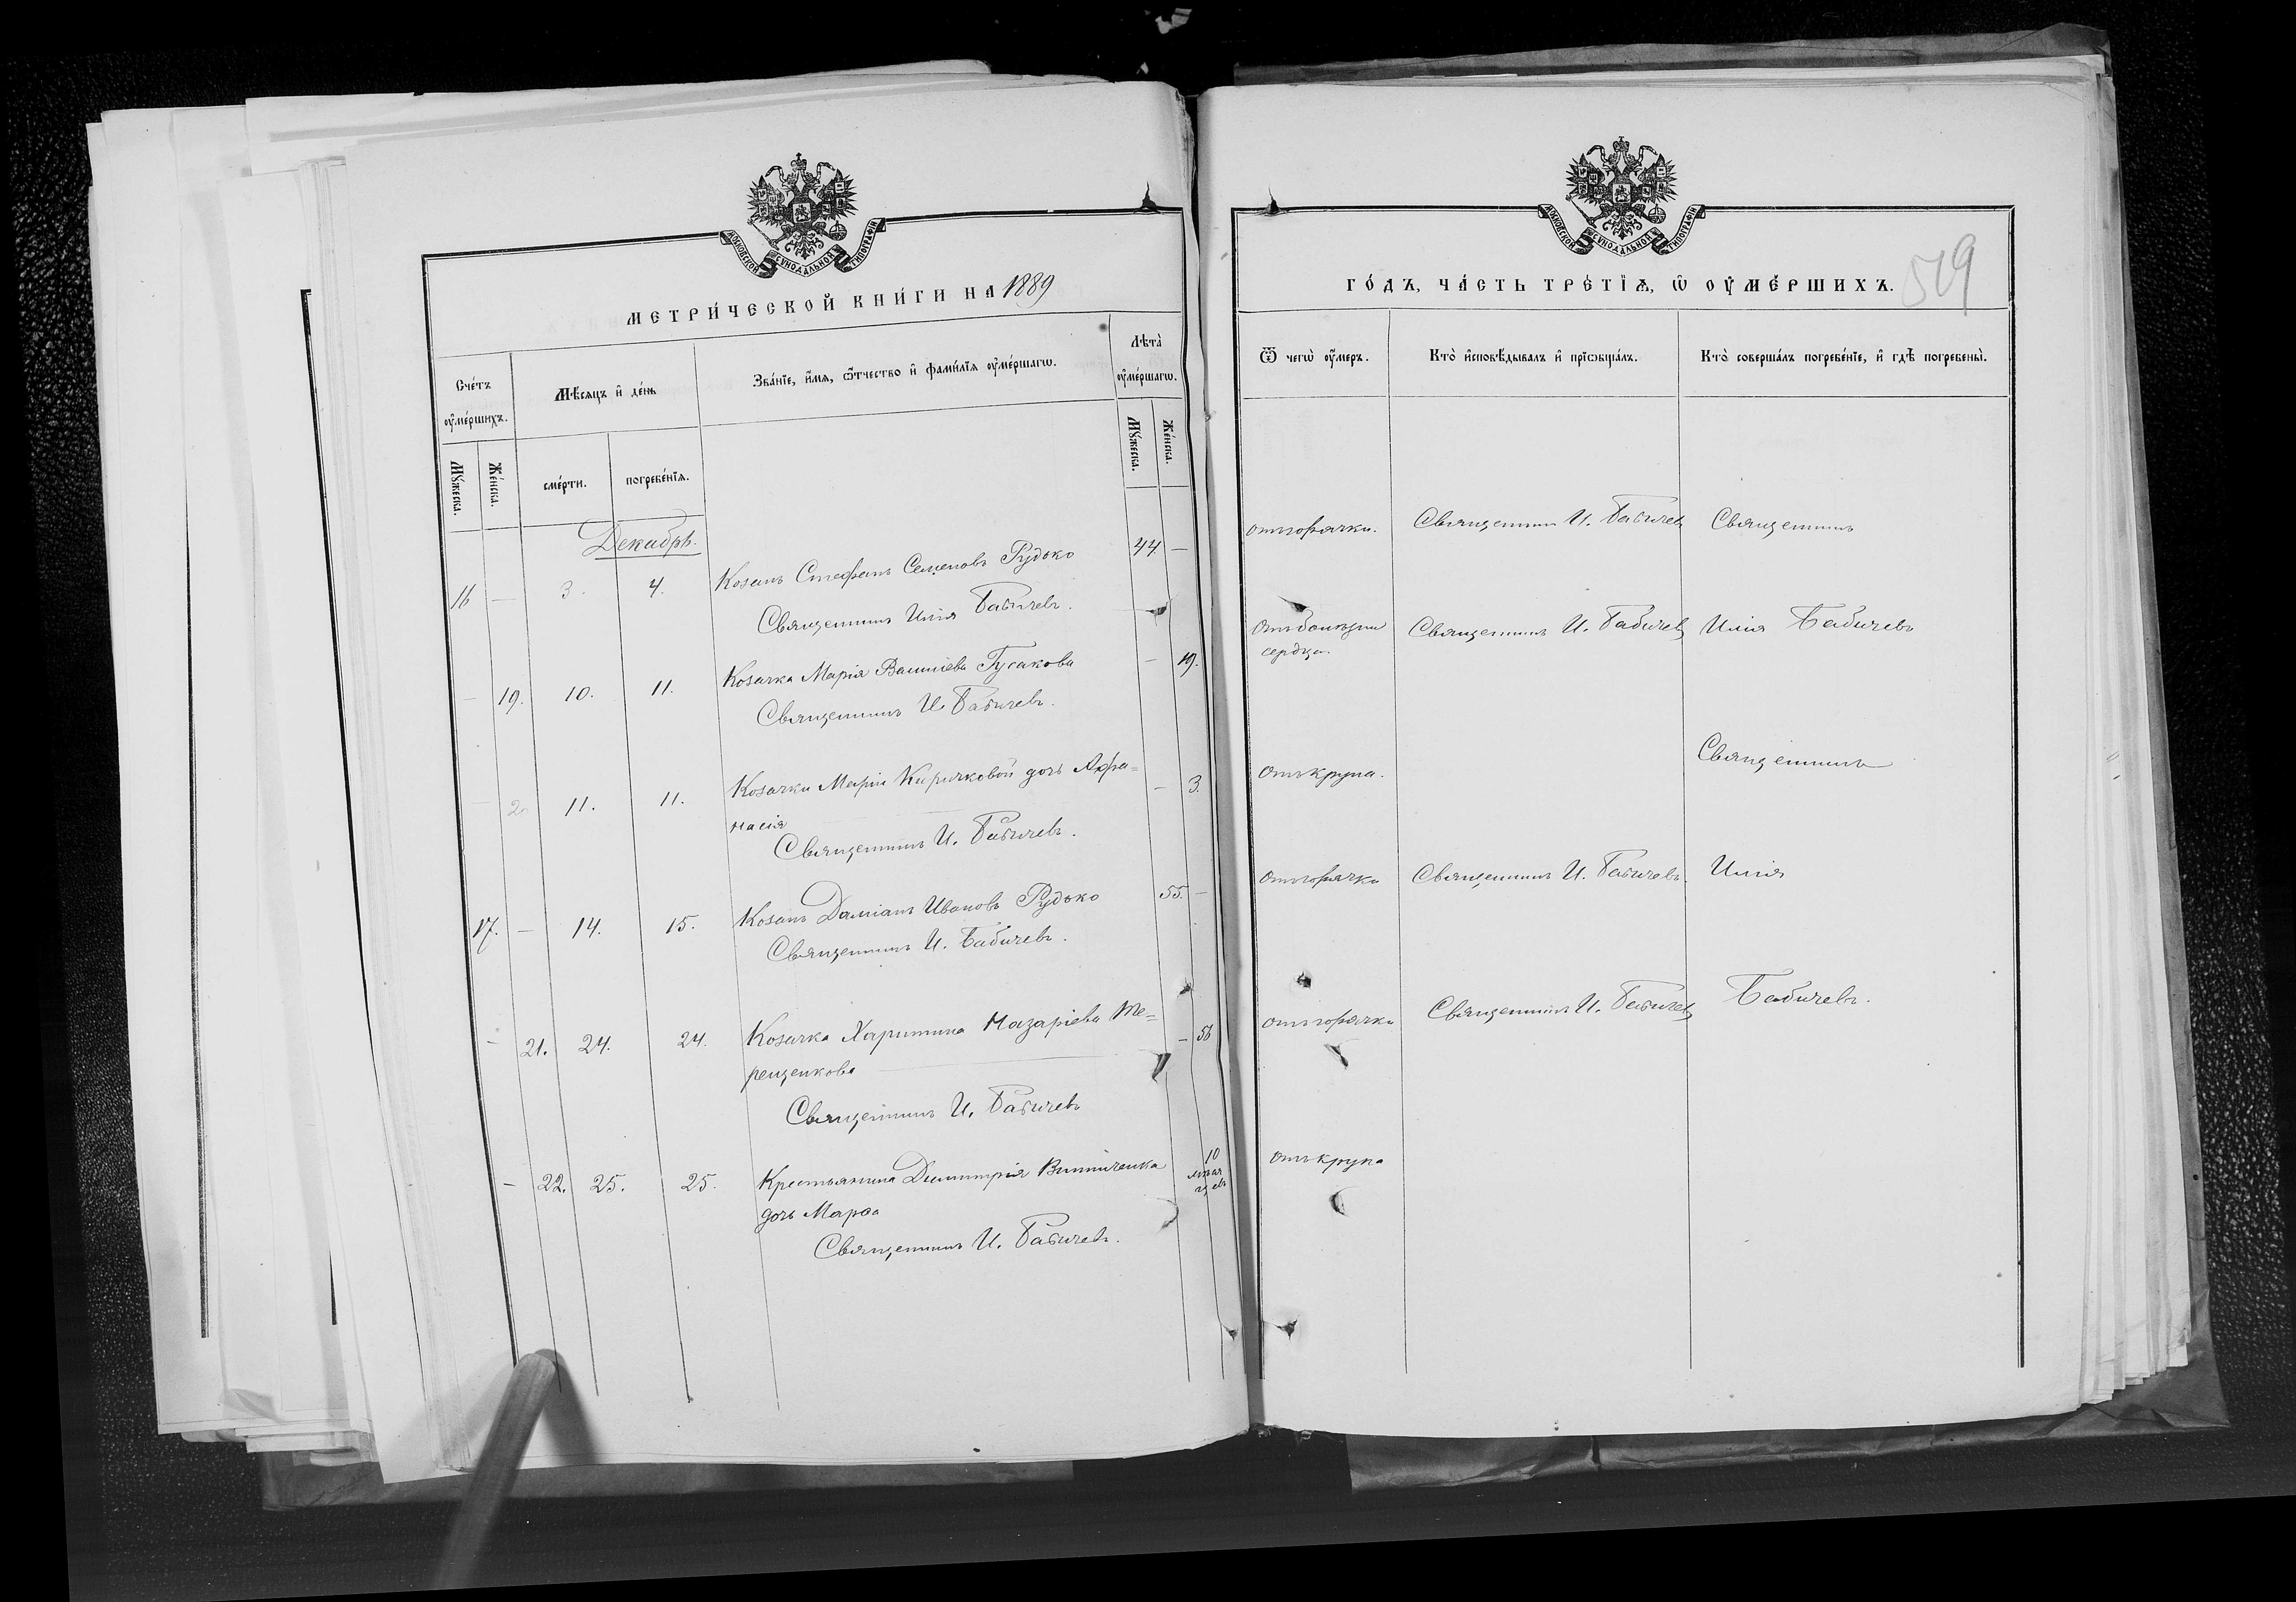 МОСКОВСКОЙ СУНОДАЛЬНОЙ ТИПОГРАФІИ
МЕТРИ́ЧЕСКОЙ КНИ́ГИ НА 1889
Сче́тъ ᲂу҆ме́ршихъ.
Мѣ́сяцъ и҆ де́нь
Зва́нїе, и҆́мѧ, ѻ҆́тчество и҆ фами́лїѧ ᲂу҆ме́ршагѡ.
Лѣ́та ᲂу҆ме́ршагѡ.
Мꙋ́жеска.
Же́нска.
сме́рти.
погребе́нїѧ.
Мꙋ́жеска.
Же́нска.
Декабрь.
16 — 3. 4. Козакъ Стефанъ Семеновъ Рудько 44 —
Священникъ Илія Бабичевъ.
— 19. 10. 11. Козачка Марія Василіева Гусакова — 19.
Священникъ И. Бабичевъ.
— 2 11. 11. Козачки Маріи Киричковой дочь Афа=
насія — 3.
Священникъ И. Бабичевъ.
17. — 14. 15. Козакъ Даміанъ Ивановъ Рудько 55. —
Священникъ И. Бабичевъ.
— 21. 24. 24. Козачка Харитина Назаріева Те=
рещенкова — 56
Священникъ И. Бабичевъ
— 22. 25. 25. Крестьянина Димитрія Винниченка 10
дочь Марѳа мѣсяцевъ
Священникъ И. Бабичевъ.
МОСКОВСКОЙ СУНОДАЛЬНОЙ ТИПОГРАФІИ
ГО́ДЪ, ЧА́СТЬ ТРЕ́ТЇѦ, Ѡ҆ ОУ҆МЕ́РШИХЪ.
519
Ѿ чегѡ̀ ᲂу҆́меръ.
Кто̀ и҆сповѣ́дывалъ и҆ прїѡбща́лъ.
Кто̀ соверша́лъ погребе́нїе, и҆ гдѣ̀ погребены̀.
отъ горячки. Священникъ И. Бабичевъ Священникъ
отъ болѣзни Священникъ И. Бабичевъ Илія Бабичевъ
сердца.
отъ крупа. Священникъ
отъ горячки Священникъ И. Бабичевъ. Илія
отъ горячки Священникъ И. Бабичевъ Бабичевъ.
отъ крупа